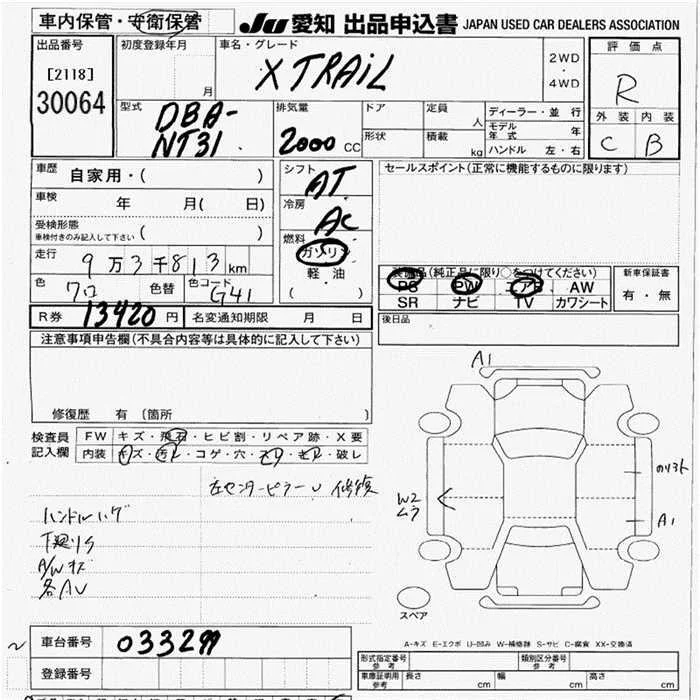 車内保管・守衛保管
JU 愛知 出品申込書 JAPAN USED CAR DEALERS ASSOCIATION
出品番号
[2118]
30064
初度登録年月
月
車名・グレード
X TRAIL
2WD
・
4WD
評価点
R
外装 内装
C B
型式
DBA-
NT31
排気量
2000 CC
ドア
定員
人
形状
積載
kg
ディーラー・並行
モデル年式 年
ハンドル 左・右
車歴
自家用・( )
車検
年 月( 日)
受検形態
車検付きのみ記入して下さい ( )
走行
9万3千813km
色
クロ
色替
色コード
G41
シフト
AT
冷房
AC
燃料
ガソリン
軽油
( )
セールスポイント(正常に機能するものに限ります)
装備品(純正品に限り○をつけてください)
PS PW エアB AW
SR ナビ TV カワシート
新車保証書
有・無
R券 13420 円
名変通知期限 月 日
後日品
注意事項申告欄(不具合内容等は具体的に記入して下さい)
修復歴 有 (箇所 )
検査員
記入欄
FW キズ・飛石・ヒビ割・リペア跡・X要
内装 キズ・汚レ・コゲ・穴・スレ・キレ・破レ
左センターピラーU 修復
ハンドルハゲ
下廻りS
A/Wキズ
各AU
A1
W2
ムラ
A1
スペア
A-キズ E-エクボ U-凹み W-補修跡 S-サビ C-腐食 XX-交換済
車台番号
033299
登録番号
形式指定番号
参考
類別区分番号
参考
車庫証明用
参考
長さ cm
幅 cm
高さ cm